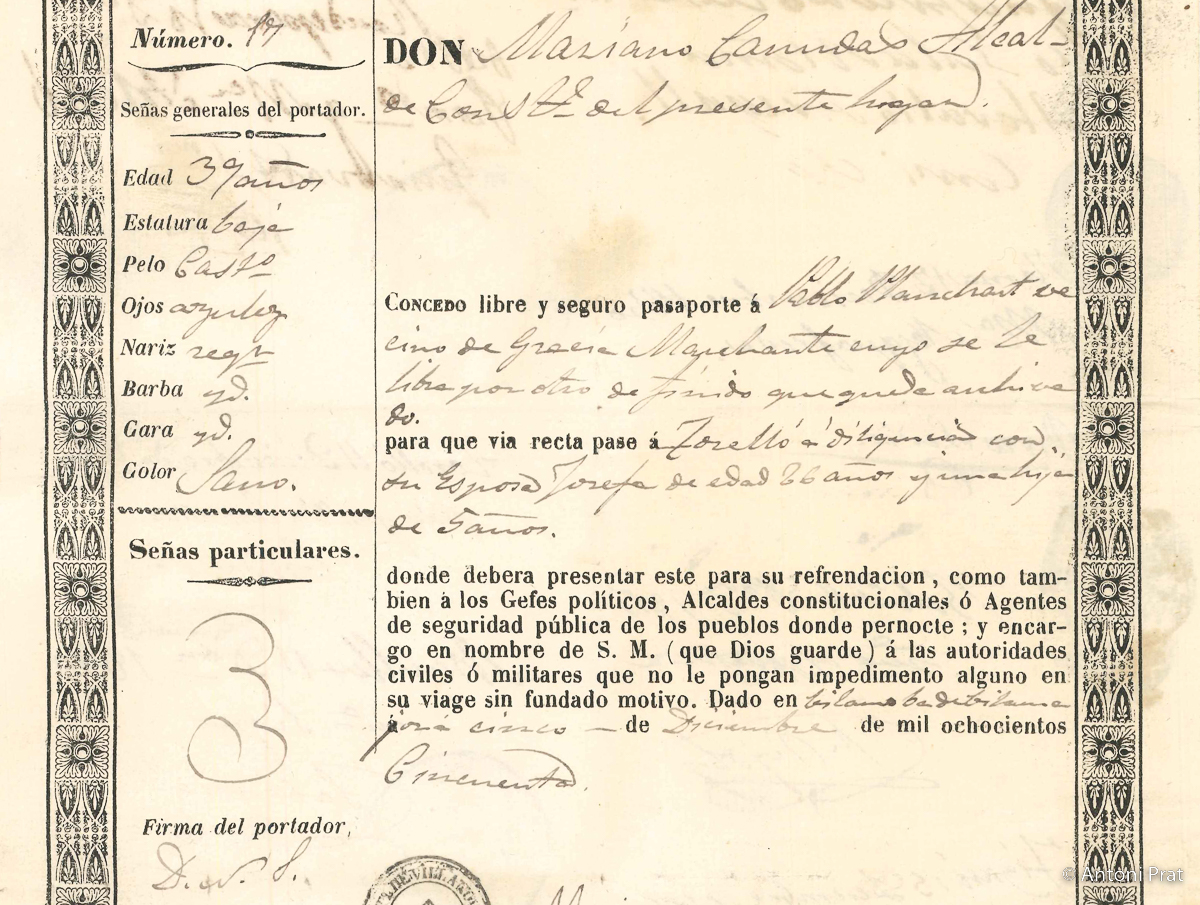 Número. 17
Señas generales del portador.
Edad 37 años
Estatura baja
Pelo Casto
Ojos azules
Nariz regr
Barba yd.
Cara yd.
Color Sano.
Señas particulares.
Firma del portador,
D. N. S.
DON Mariano Canudas Alcal-
de Const.l del presente
CONCEDO libre y seguro pasaporte á Pablo Planchart ve
cino de Gracia Marchante cuyo se le
libra por otro de que queda archiva
do.
para que via recta pase á Torelló a diligencias con
su Esposa Josefa de edad 26 años y una hija
de 5 años.
donde debera presentar este para su refrendacion, como tam-
bien á los Gefes políticos, Alcaldes constitucionales ó Agentes
de seguridad pública de los pueblos donde pernocte; y encar-
go en nombre de S. M. (que Dios guarde) á las autoridades
civiles ó militares que no le pongan impedimento alguno en
su viage sin fundado motivo. Dado en
á cinco de Diciembre de mil ochocientos
Cincuenta.
DE VILLA
© Antoni Prat